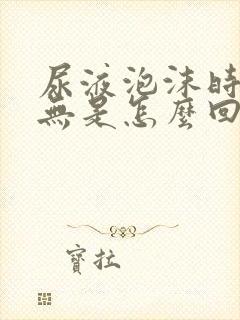 尿液泡沫時
無是怎麼回
寶拉